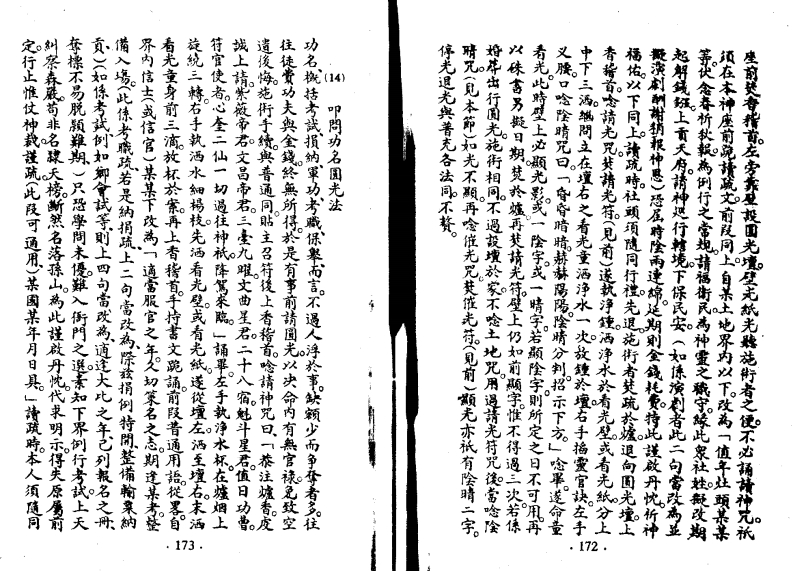 座前焚香稽首。左旁靠壁設圓光壇。壁光紙光聽施術者之便。不必誦請神咒。祇
須在本神座前跪請讀疏文前段同上。自某土地界內以下。改為「值年社頭某某
等。伏念春祈秋報。為例行之常規。請福衛民。為神靈之職守。緣此眾社姓擬改期
起解錢班上貢天府。請神廵行轄境下保民安。(如係演劇者此二句當改為並
擬演劇酬謝稍報神恩)恐屆時陰雨連綿。延期則金錢耗費。特此謹啟丹忱。祈神
福佑。以下同上。讀疏時。社頭須隨同行禮。先退。施術者焚疏於爐。退向圓光壇上
香稽首。唸請光咒。焚請光符。(見前)遂執淨鍾洒淨水於看光壁。或看光紙。分上
中下三洒。繼問立在壇右之看光童。洒淨水一次。放鍾於壇。右手搯靈官訣。左手
叉腰。口唸陰晴咒曰。「昏昏暗暗。赫赫陽陽。陰晴分判。招示下方。」唸畢。遂命童
看光。此時壁上必顯光影。或一陰字。或一晴字。若顯陰字。則所定之日不可用。再
以硃書另擬日期。焚於爐。再焚請光符。壁上仍如前顯字。惟不得過三次。若係
婚葬出行圓光。施術相同。不過設壇於家。不唸土地咒。用過請光符咒後。當唸陰
晴咒(見本節)如光不顯。再唸催光咒。焚催光符。(見前)顯光亦祇有陰晴二字。
停光退光。與普光各法同。不贅。
·172·
(14) 叩問功名圓光法
功名概括考試損納軍功考職。係舉而言。不過人浮於事。缺額少而爭奪者多。往
往徒費功夫與金錢。終無所得。於是有事前請圓光以決命內有無官祿。免致空
遺後悔。施術手續。與普通同。貼主召符後。上香稽首。唸請神咒曰。「恭注爐香。虔
誠上請。紫薇帝君。文昌帝君。三臺九曜。文曲星君。二十八宿。魁斗星君。值日功曹。
符官使者。心奎二仙。一切過往神祇。降駕來臨。」誦畢。左手執淨水杯。在爐烟上
旋繞三轉。右手執洒水細楊枝。先洒看光壁。或看光紙。遂從壇左洒至壇右。末洒
看光童身前三滴。放杯於案。再上香稽首。手持書文。跪誦前段普通用語。從署自
界內信士(或信官)某某下改為「適當服官之年。久切策名之志。期逢某考。整
備入場。(此係考職疏。若是納捐疏。上二句當改為。際茲捐例特開。整備輸粟納
貢。)(如係考試例如鄉會試等。則上四句當改為。適逢大比之年。已列報名之冊。
奪標不易。脫穎難期。)只恐學問未優。難入衙門之選。素知下界例行考試。上天
糾察森嚴。苟非名隸天榜。斷然名落孫山。為此謹啟丹忱。代求明示得失。原屬前
定。行止惟仗神裁。謹疏(此段可通用)某國某年月日具。」讀疏時。本人須隨同
·173·